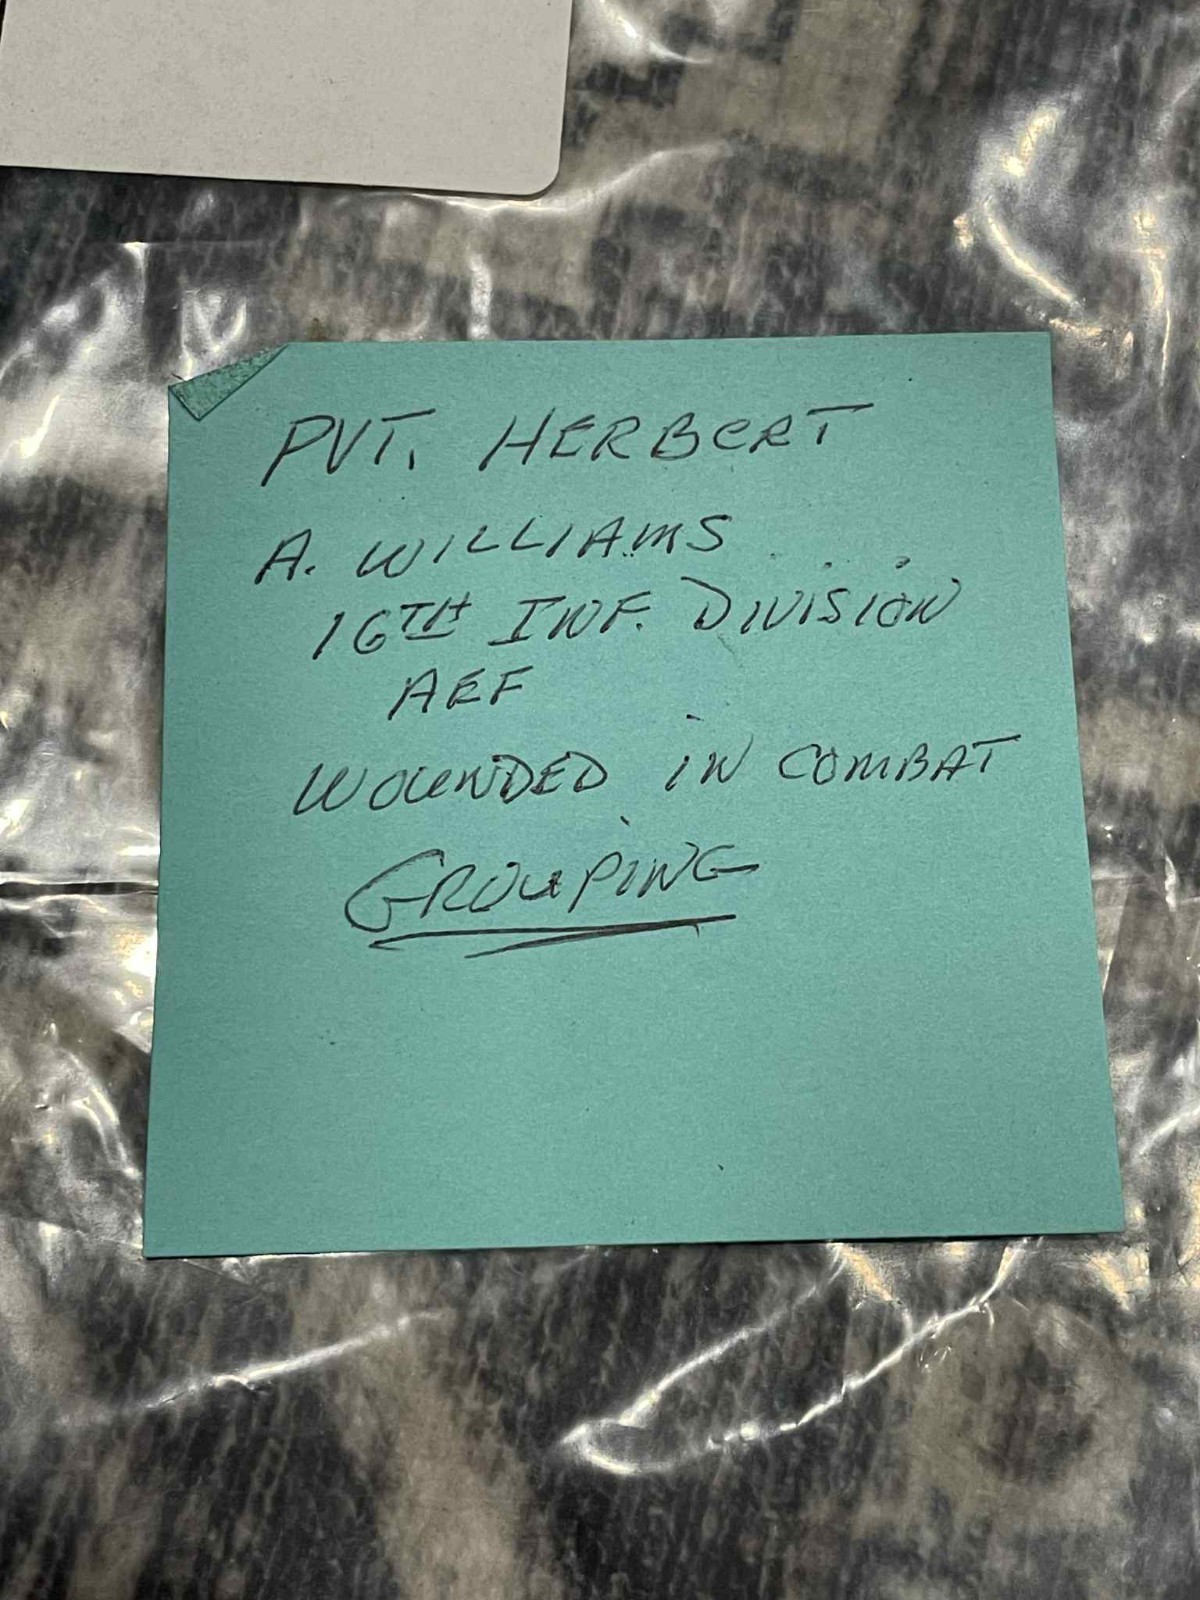 PVT. HERBERT
A. WILLIAMS
16TH INF. DIVISION
AEF
WOUNDED IN COMBAT
GROUPING